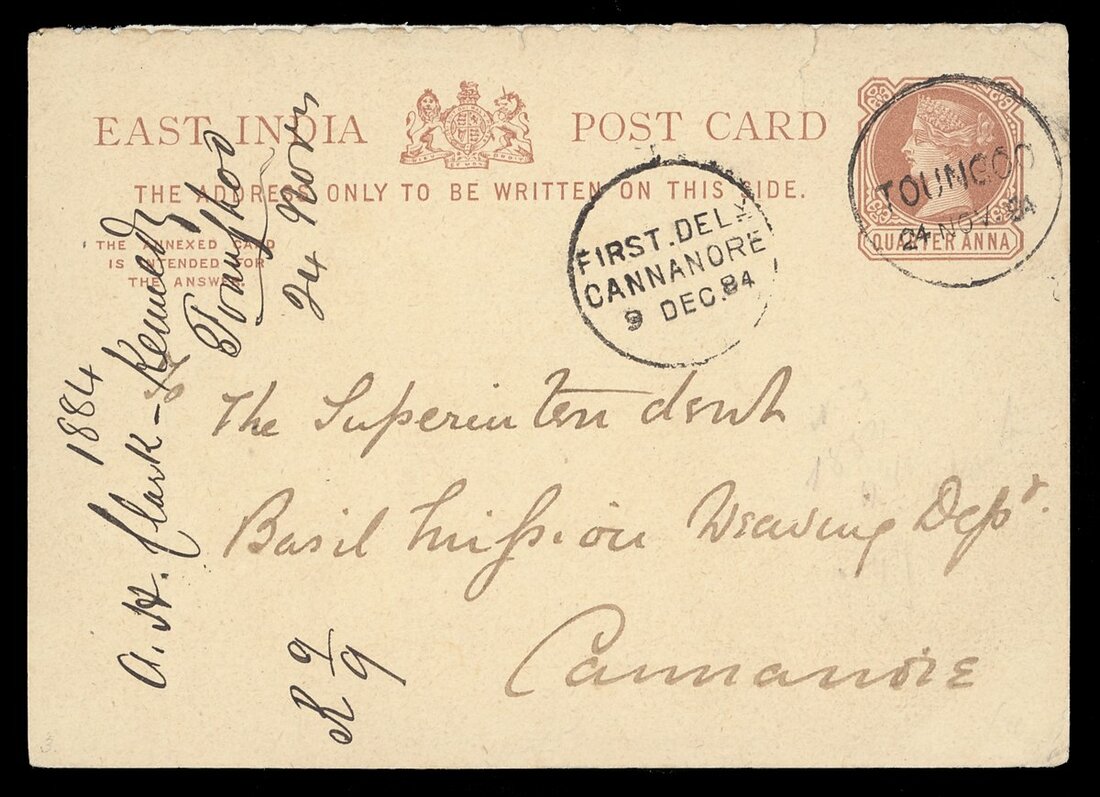 EAST INDIA POST CARD
THE ADDRESS ONLY TO BE WRITTEN ON THIS SIDE.
THE ANNEXED CARD
IS INTENDED FOR
THE ANSWER.
QUARTER ANNA
TOUNGOO
24 NOV. 84
FIRST. DELY
CANNANORE
9 DEC. 84
The Superintendent
Basil Mission Weaving Dept.
Cannanore
1884
A. H. Clark-Kennedy
Tounghoo
24 Novr
R 9/9